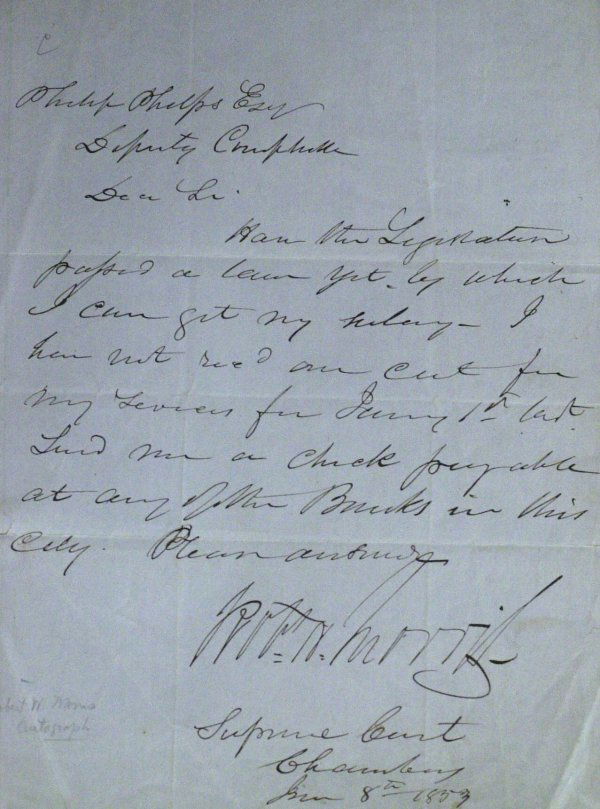 Philip Phelps Esq
Deputy Comptroller
Dear Sir.
Have the Legislature
passed a law yet - by which
I can get my salary - I
have not rec'd one cent for
my services for January 1st last.
Send me a check payable
at any of the Banks in this
city. Please answer
Robt. H. Morris
Supreme Court
Chambers
8th 1853
Autograph